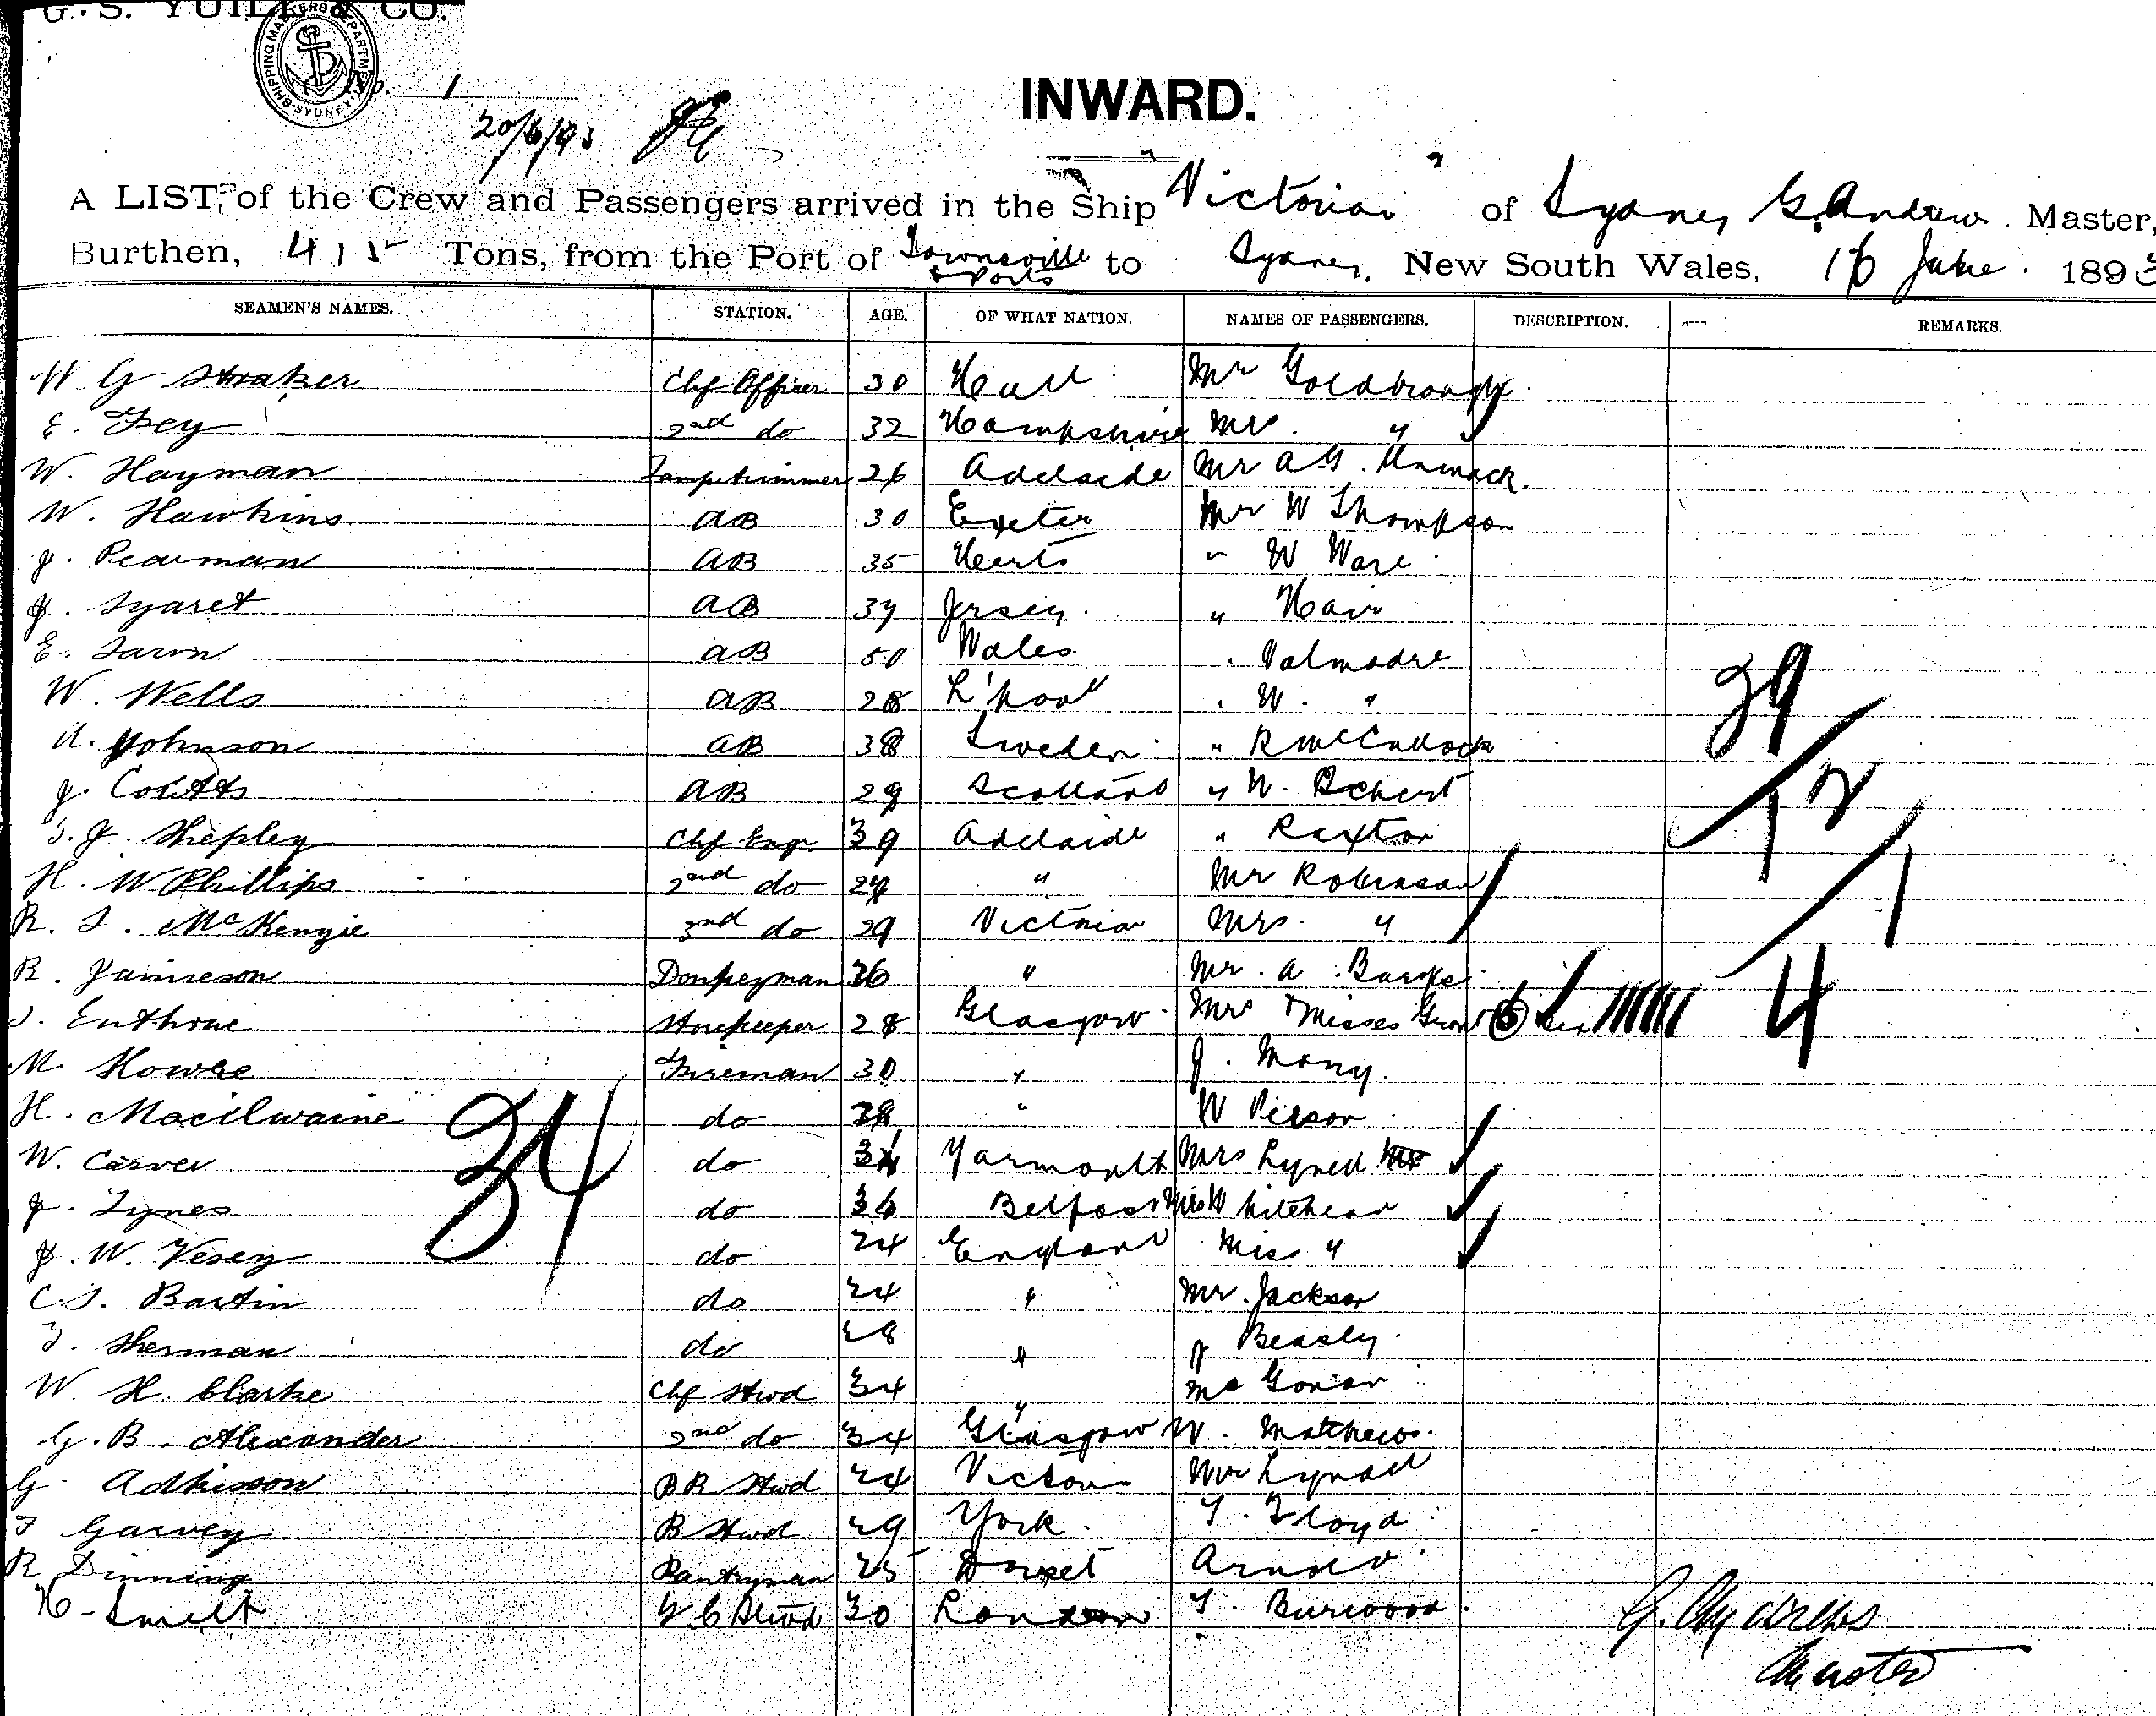 G. S. YUILL & CO.
SHIPPING MASTERS DEPARTMENT SYDNEY
No. 1
20/6/93
INWARD.
A LIST, of the Crew and Passengers arrived in the Ship "Victorian" of Sydney G. Andrews. Master,
Burthen, Tons, from the Port of Townsville & Ports to Sydney, New South Wales, 16 June. 1893
SEAMEN'S NAMES. STATION. AGE. OF WHAT NATION. NAMES OF PASSENGERS. DESCRIPTION. REMARKS.
W G Straker Chf Officer 30 Hull Mr Goldbrough
E. Frey 2nd do 32 Hampshire Mrs. "
W. Hayman Lamptrimmer 26 Adelaide Mr A G.
W. Hawkins AB 30 Exeter Mr W Thompson
J. Pearman AB 35 Herts " W Ware
J. Syaret AB 37 Jersey. " Hair
E. Tarn AB 50 Wales "
W. Wells AB 28 L'pool " W. "
A. Johnson AB 38 Sweden " R McCullock
J. Coutts AB 29 Scotland " W. Eckert
T. J. Shepley Chf Engr. 39 Adelaide " Rexton
H. W Phillips 2nd do " Mr Robinson
R. J. McKenzie 3rd do 29 Victoria Mrs. "
R. Jamieson Donkeyman 36 " Mr. A.
J. Storekeeper 28 Glasgow Mrs & Misses Grant 6
M Howie Fireman 30 " J. Mony.
H. Macilwaine do 38 " W Pierson
W. Carver do Yarmouth Mrs Lynell
J. Lynes do 36 Belfast Mrs Whitehead
J. W. Vesey do 24 England Miss "
C. J. Bartin do 24 " Mr. Jackson
J. Sherman do 28 " J Beasley.
W. H. Clarke Chf Stwd 34 " McGovan
G. B. Alexander 2nd do 34 Glasgow W. Matthews.
G Adkisson BR Stwd 24 Victoria Mr Lynall
F Garvey B Stwd 29 York. T. Floyd
R Dinning Pantryman 25 Dorset Arnold
H. Smelt F.C Stwd 30 London T. Burwood.
34
39
12
1
4
G. Andrews
Master